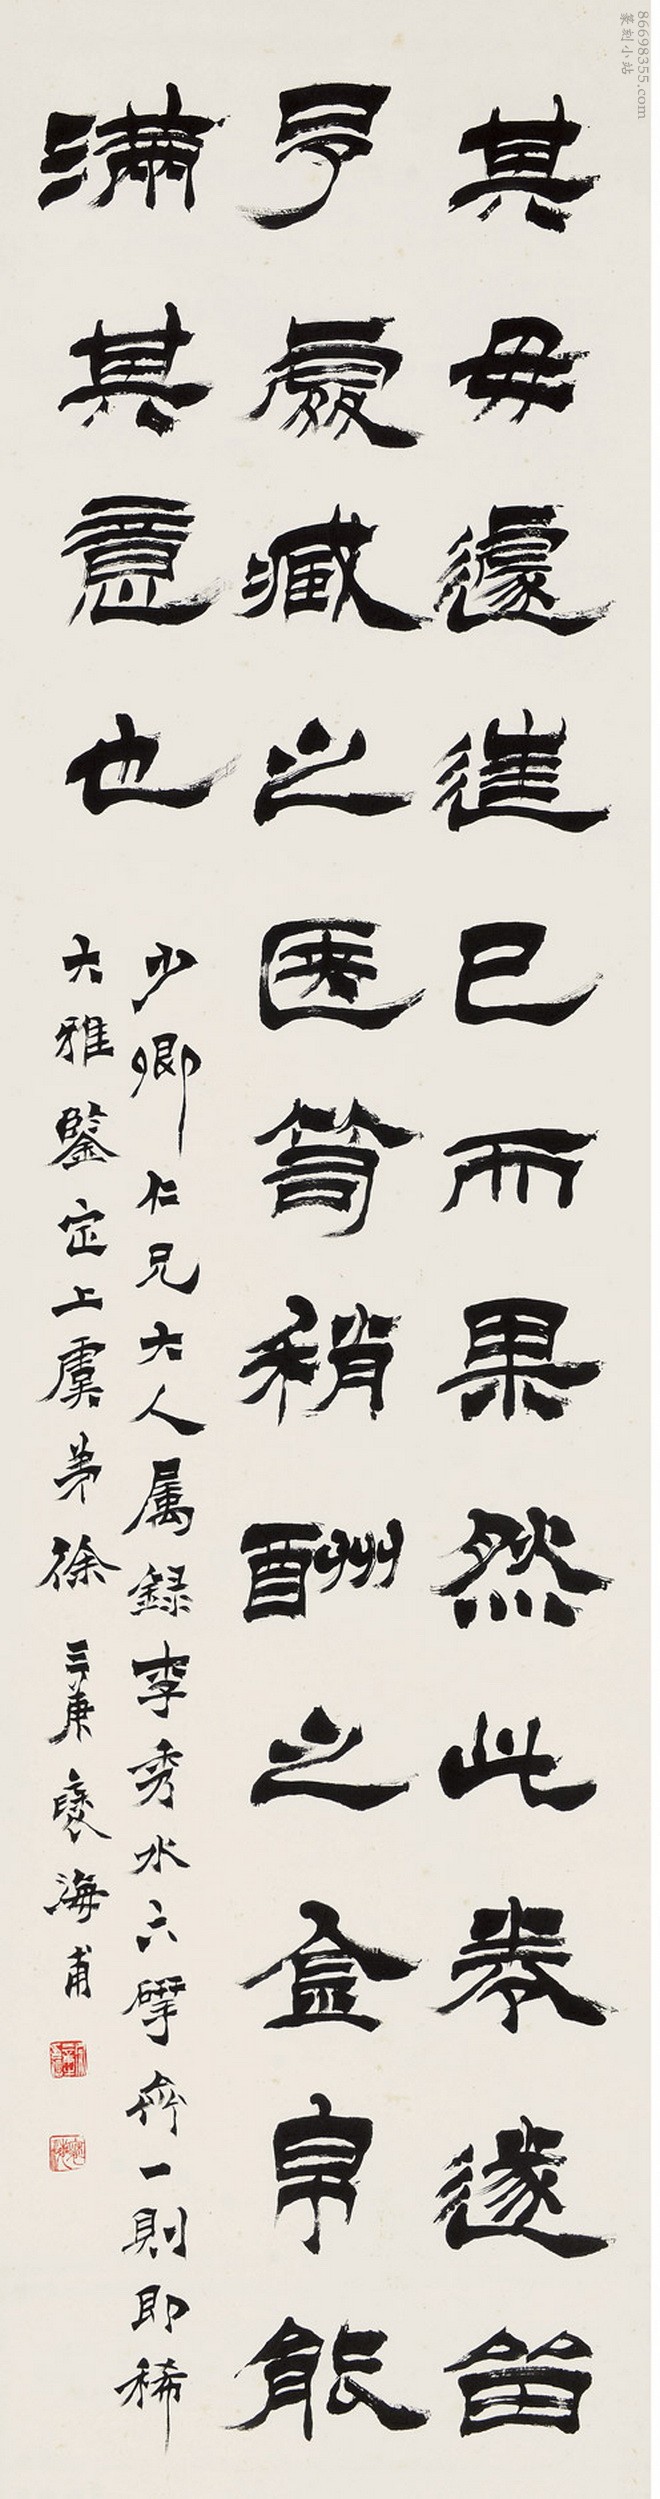 其毋遽進已而果然此卷遂留
予處藏之匧笥稍酬之金帛能
滿其意也
少卿仁兄大人属録李秀水六硏齋一則即稀
大雅鑒定上虞弟徐三庚褎海甫
86698355.com
篆刻小站